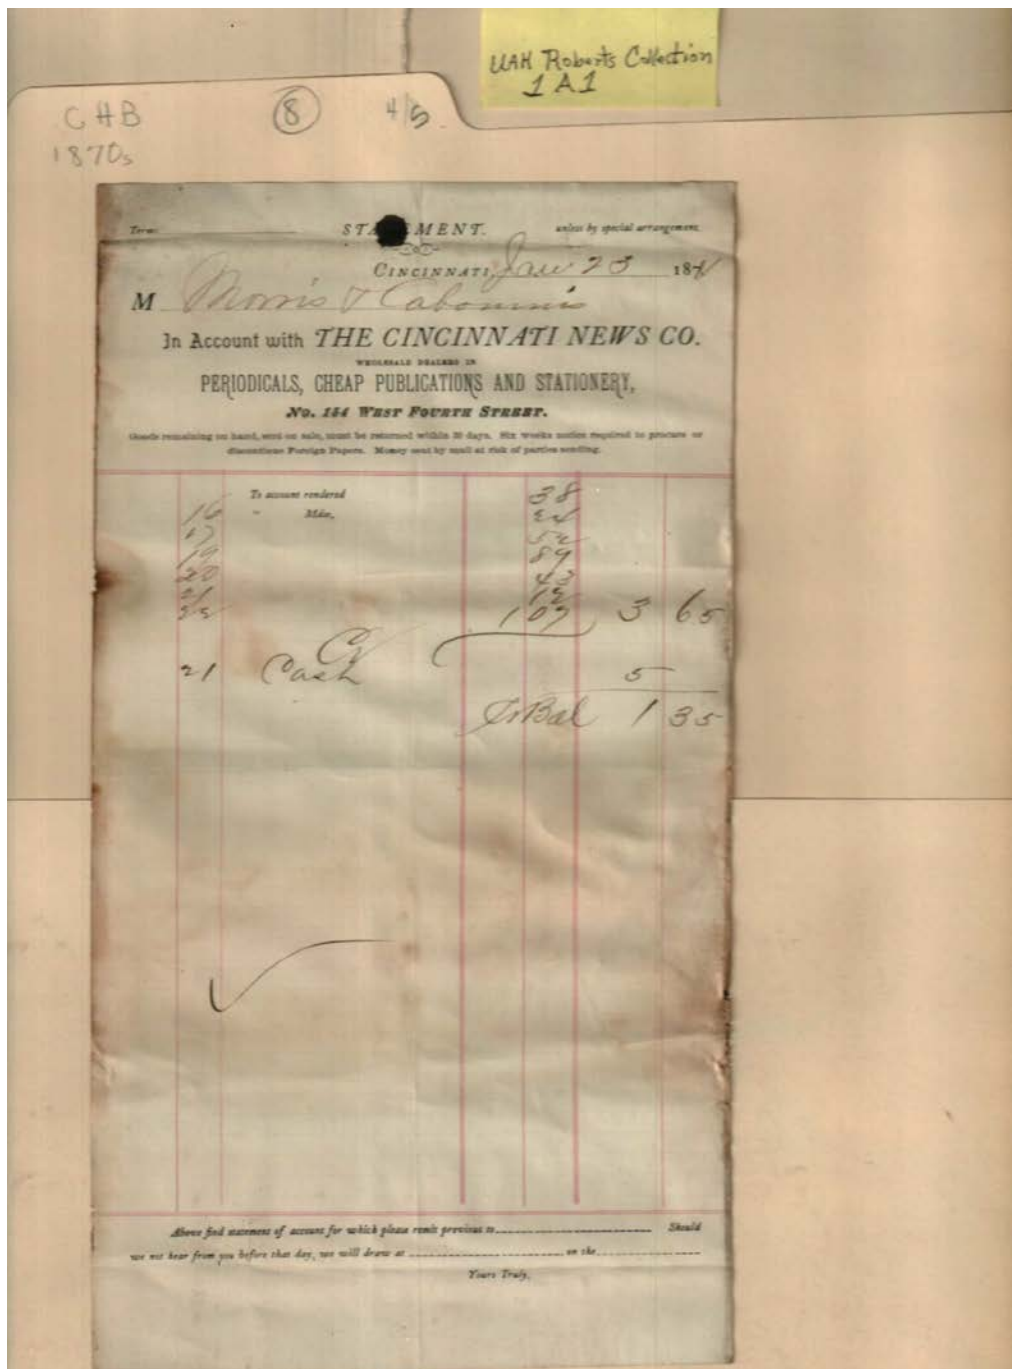 UAH Roberts Collection
1 A 1
CHB ⑧ 4/5
1870s
Terms STATEMENT. unless by special arrangement.
CINCINNATI, Jan 23 187
M Morris &
In Account with THE CINCINNATI NEWS CO.
WHOLESALE DEALERS IN
PERIODICALS, CHEAP PUBLICATIONS AND STATIONERY,
No. 154 WEST FOURTH STREET.
Goods remaining on hand, sent on sale, must be returned within 30 days. Six weeks notice required to procure or
discontinue Foreign Papers. Money sent by mail at risk of parties sending.
To account rendered 38
16 " Mdse, 24
17 52
19 89
20 43
21 12
22 107 3 65
Cr
21 Cash 5
Bal 1 35
Above find statement of account for which please remit previous to Should
we not hear from you before that day, we will draw at on the
Yours Truly,